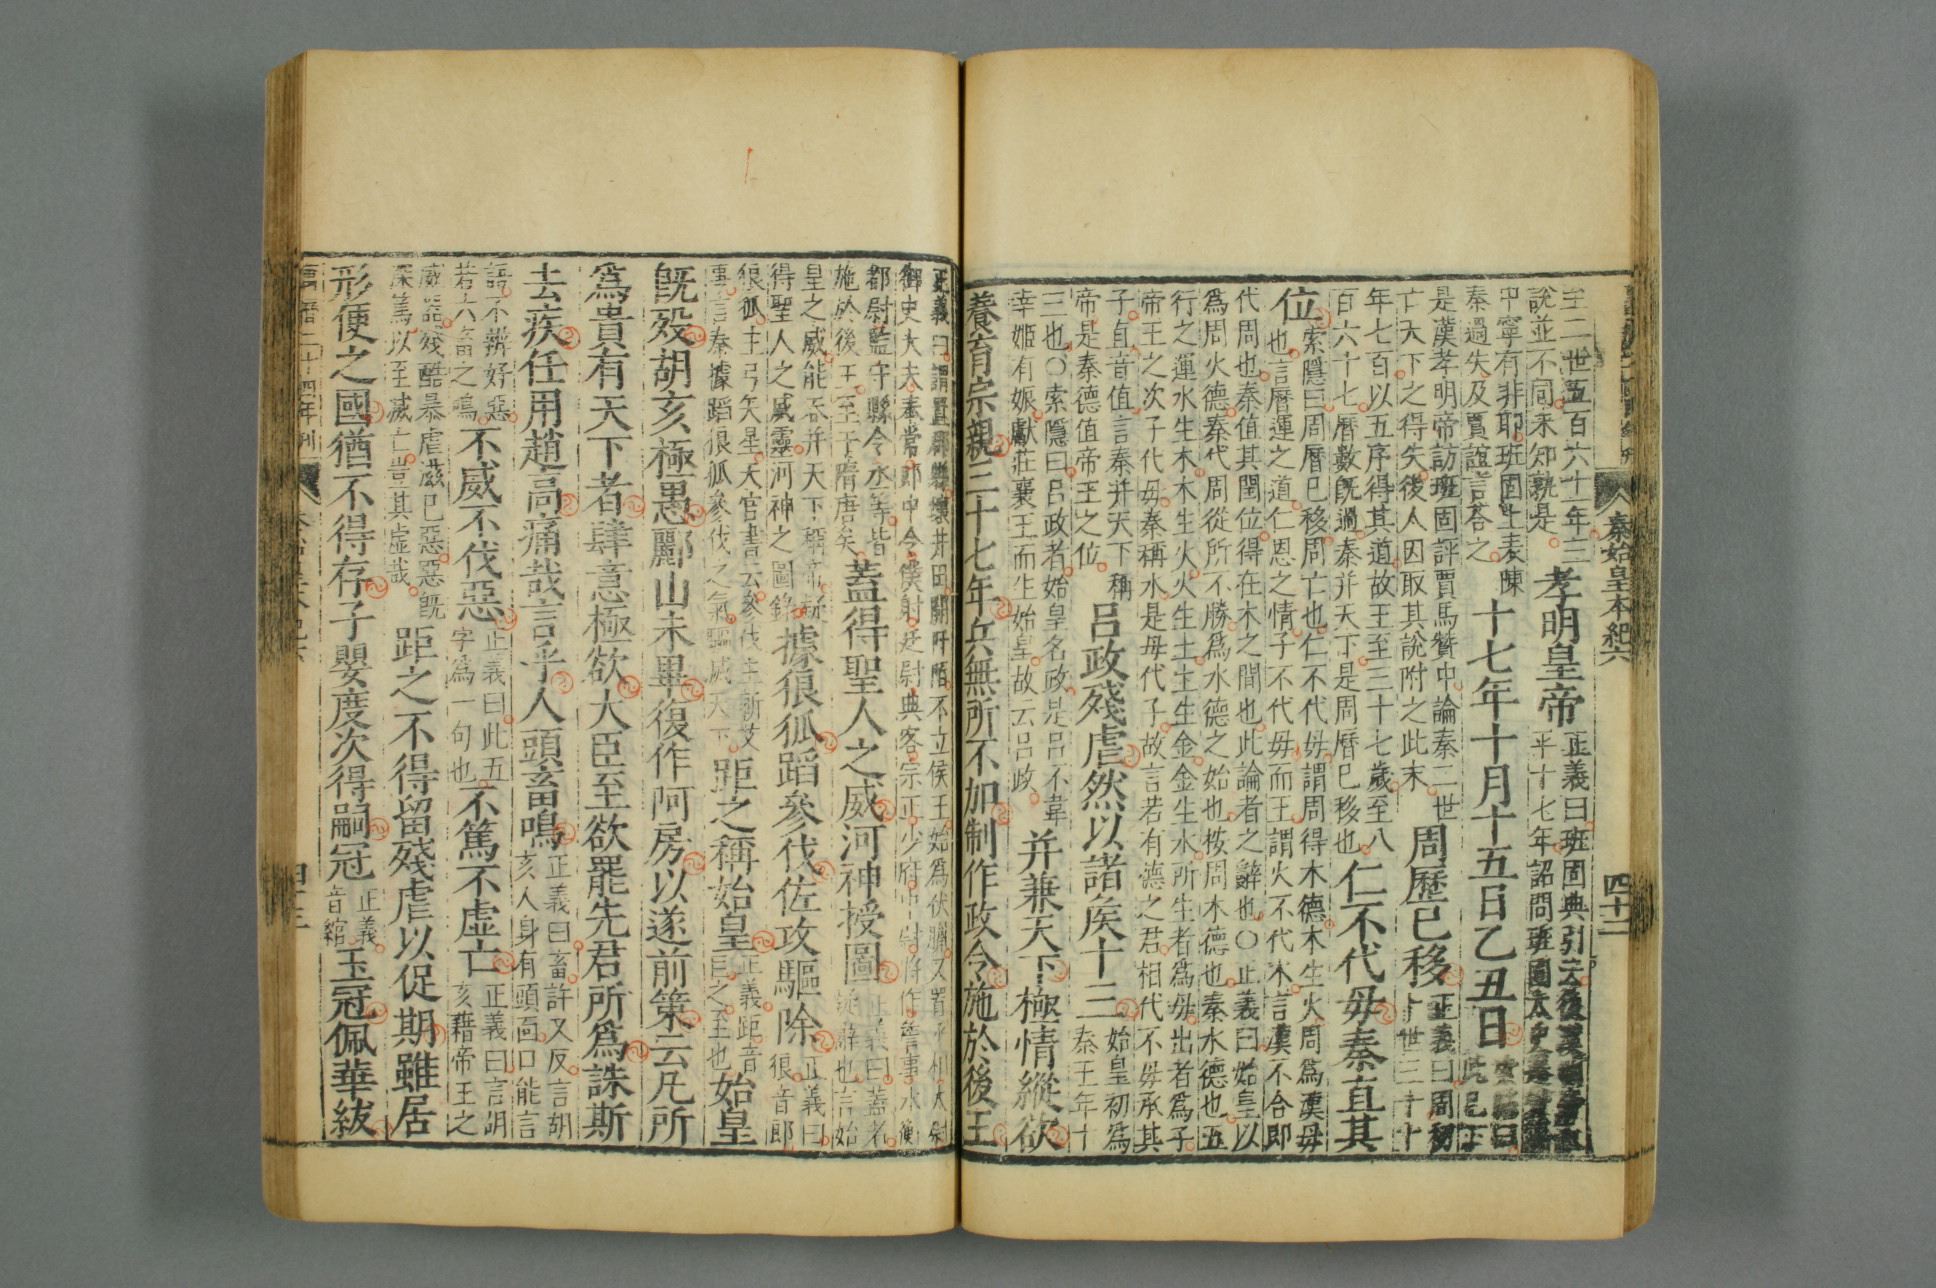 至二世五百六十年三
說並不同未知孰是
孝明皇帝
正義曰班固典引云後漢明帝永
平十七年詔問班固太史遷
中寧有非耶班固上表陳
秦過失及賈誼言荅之
十七年十月十五日乙丑日
是漢孝明帝訪班固評賈馬贊中論秦二世
亡天下之得失後人因取其說附之此末
周曆已移
正義曰周初
十世三十
年七百以五序得其道故王至三十七歲至八
百六十七曆數旣過秦并天下是周曆已移也
仁不代毋秦直其
位
索隱曰周曆已移周亡也仁不代毋謂周得木德木生火周爲漢毋
也言曆運之道仁恩之情子不代毋而王謂火不代木言漢不合即
代周也秦值其閏位得在木之間也此論者之辭也○正義曰始皇以
爲周火德秦代周從所不勝爲水德之始也按周木德也秦水德也五
行之運水生木木生火火生土土生金金生水所生者爲毋出者爲子
帝王之次子代毋秦稱水是毋代子故言若有德之君相代不毋承其
子直音值言秦并天下稱
帝是秦德值帝王之位
呂政殘虐然以諸矦十三
始皇初爲
秦王年十
三也○索隱曰呂政者始皇名政是呂不韋
幸姬有娠獻莊襄王而生始皇故云呂政
并兼天下極情縱欲
養育宗親三十七年兵無所不加制作政令施於後王
正義曰謂置郡縣壞井田開阡陌不立侯王始爲伏臘又置丞相太尉
御史大夫奉常郎中令僕射廷尉典客宗正少府中尉將作詹事水衡
都尉監守縣令丞等皆
施於後王至于隋唐矣
蓋得聖人之威河神授圖
正義曰蓋者
疑辭也言始
皇之威能吞并天下稱帝疑
得聖人之威靈河神之圖錄
據狼狐蹈參伐佐攻驅除
正義曰
狼音郎
狼狐主弓矢星天官書云參伐主斬艾
事言秦據蹈狼狐參伐之氣驅滅天下
距之稱始皇
正義距音
巨之至也
始皇
旣歿胡亥極愚酈山未畢復作阿房以遂前策云凡所
爲貴有天下者肆意極欲大臣至欲罷先君所爲誅斯
去疾任用趙高痛哉言乎人頭畜鳴
正義曰畜許又反言胡
亥人身有頭面口能言
語不辨好惡
若六畜之鳴
不威不伐惡
正義曰此五
字爲一句也
不篤不虛亡
正義曰言胡
亥藉帝王之
威器殘酷暴虐滋已惡惡旣
深篤以至滅亡豈其虛哉
距之不得留殘虐以促期雖居
形便之國猶不得存子嬰度次得嗣冠
正義
音綰
玉冠佩華紱
秦始皇本紀六
四十二